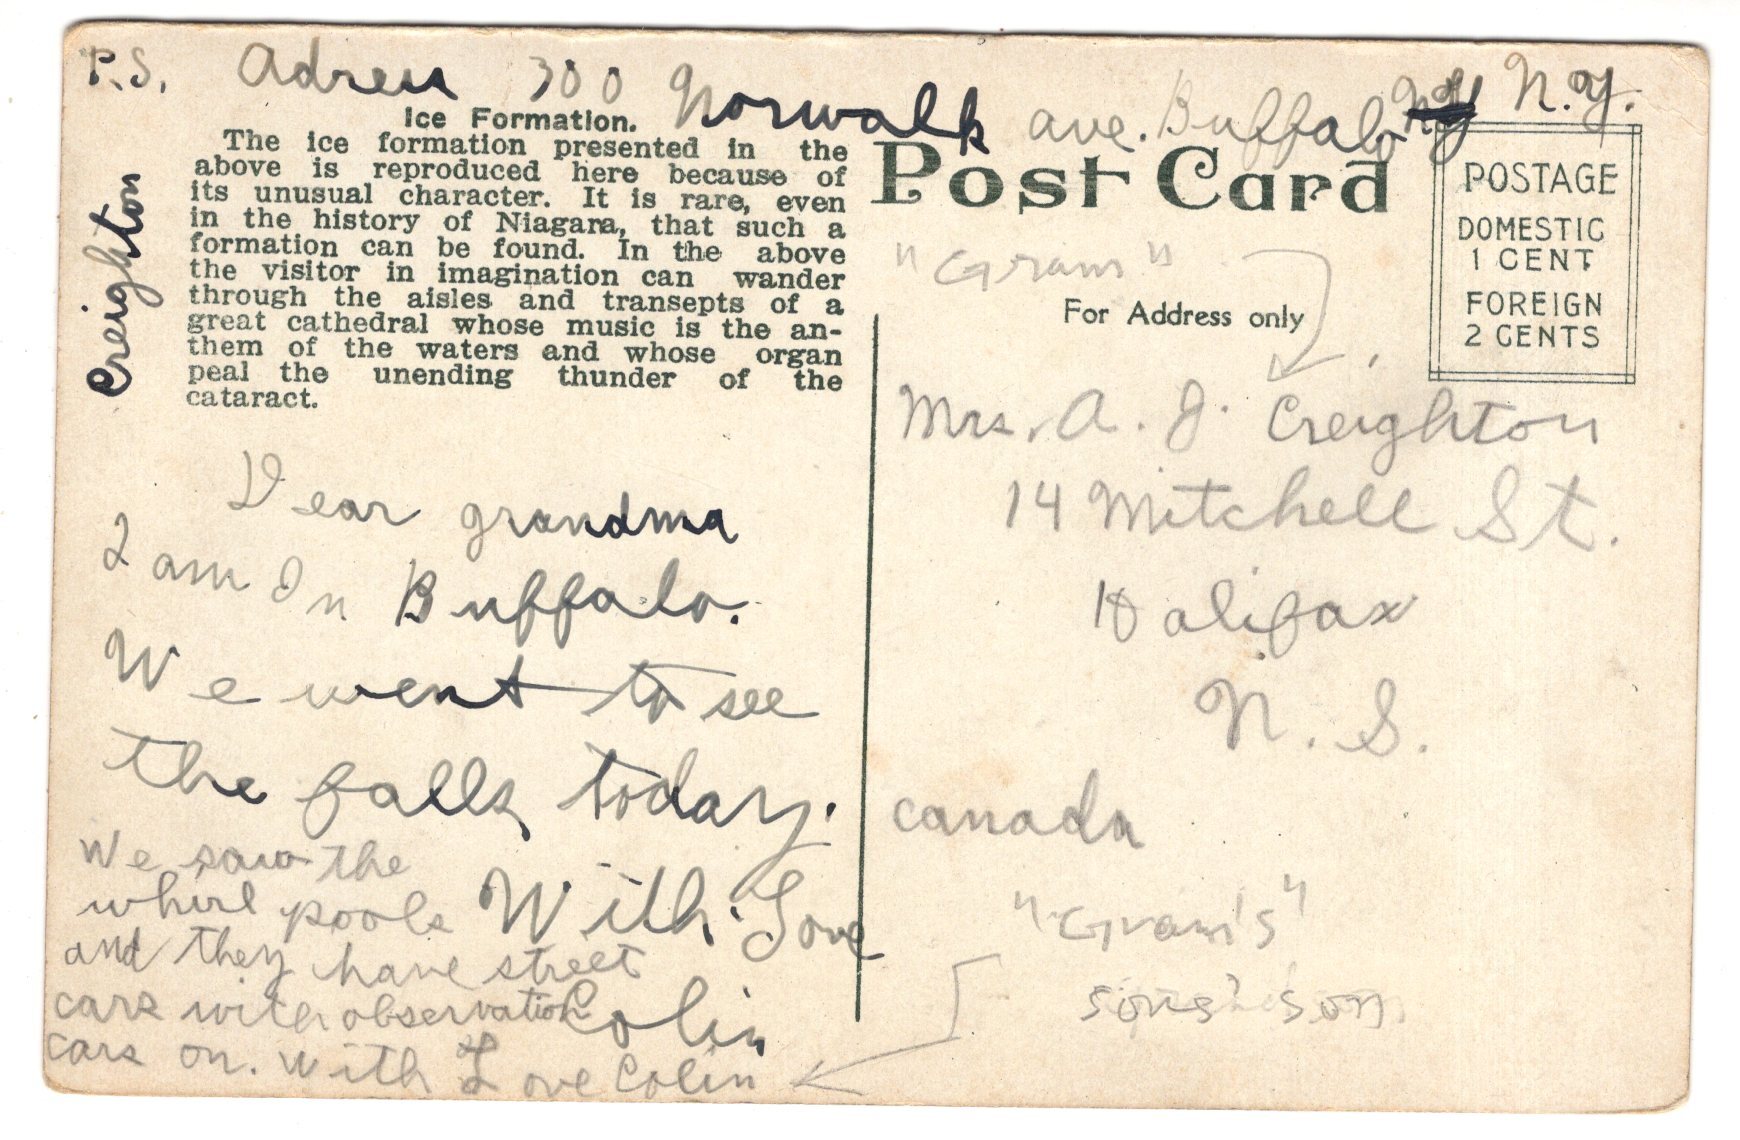 P.S. Adress 300 Norwalk ave. Buffalo N.Y.
Creighton
Ice Formation.
The ice formation presented in the
above is reproduced here because of
its unusual character. It is rare, even
in the history of Niagara, that such a
formation can be found. In the above
the visitor in imagination can wander
through the aisles and transepts of a
great cathedral whose music is the an-
them of the waters and whose organ
peal the unending thunder of the
cataract.
Dear grandma
I am In Buffalo.
We went to see
the falls, today.
With Love
Colin
We saw the
whirl pools
and they have street
cars with observation
cars on. With Love Colin
Post Card
For Address only
POSTAGE
DOMESTIC
1 CENT
FOREIGN
2 CENTS
"Gram"
Mrs. A. J. Creighton
14 Mitchell St.
Halifax
N. S.
canada
"Gram's"
sons' son.